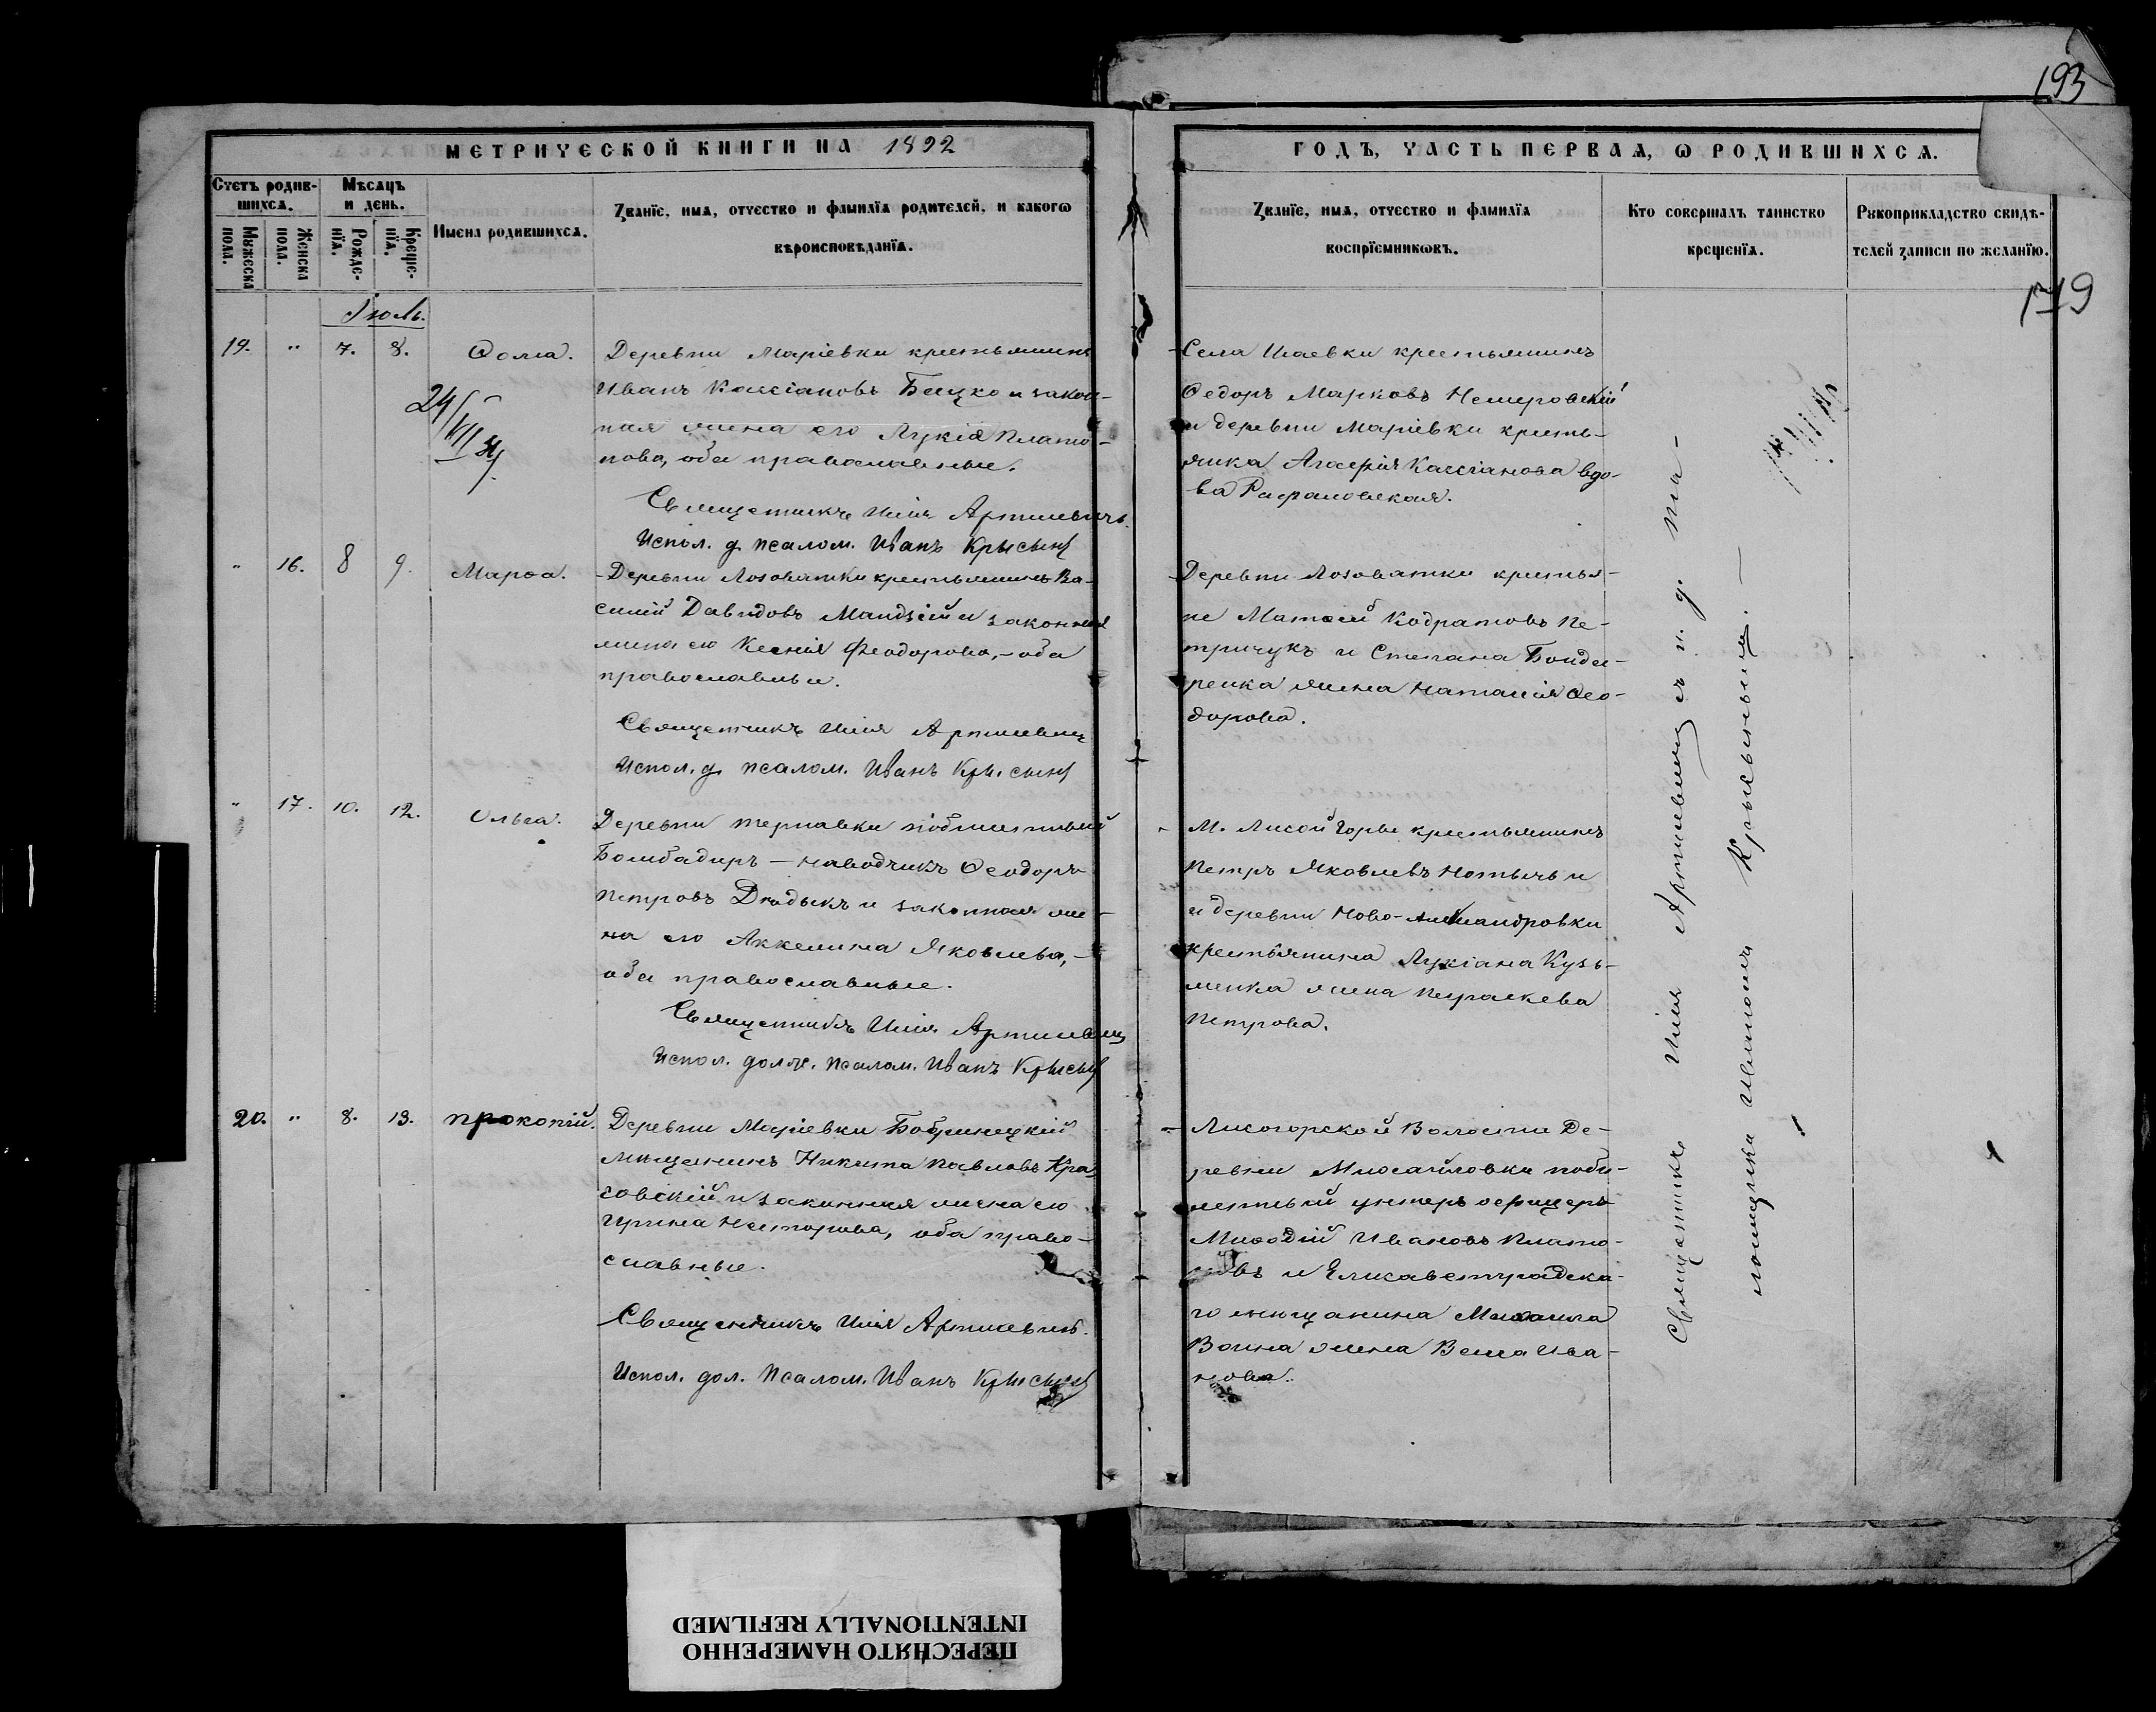 193
МЕТРИЧЕСКОЙ КНИГИ НА 1892
ГОДЪ, ЧАСТЬ ПЕРВАѦ, Ѡ РОДИВШИХСѦ.
Счетъ родив-
шихсѧ.
Мѣсѧцъ
и день.
Имена родившихсѧ.
Званїе, имѧ, отчество и фамилїѧ родителей, и какогѡ
вѣроисповѣданїѧ.
Мꙋжеска
пола.
Женска
пола.
Рожде-
нїѧ.
Креще-
нїѧ.
Званїе, имѧ, отчество и фамилїѧ
воспрїемникѡвъ.
Кто совершалъ таинство
крещенїѧ.
Рꙋкоприкладство свидѣ-
телей записи по желанїю.
179
Іюль.
19. " 7. 8. Ѳома. Деревни Маріевки крестьянинъ
Иванъ Кассіановъ Бецко и закон-
ная жена его Лукія Плато-
нова, оба православные.
Священникъ Илія Артишевичъ.
Испол. д. псалом. Иванъ Крысынъ
24/VII
Села Исаевки крестьянинъ
Ѳедоръ Марковъ Немеровскій
и деревни Маріевки кресть-
янка Агафія Кассіанова вдо-
ва
" 16. 8 9. Марѳа. Деревни Лозоватки крестьянинъ Ва-
силій Давидовъ Мандзій и законная
жена его Ксенія Феодорова, - оба
православные.
Священникъ Илія Артишевич
Испол. д. псалом. Иванъ Крысынъ
Деревни Лозоватки крестья-
не Матѳей Кодратовъ Пе-
тричукъ и Степана Бонда-
ренка жена Наталія Ѳео-
дорова.
" 17. 10. 12. Ольга. Деревни Тернавки
Бомбадиръ - наводчикъ Ѳеодоръ
Петровъ Дюдыкъ и законная же-
на его Аккелина Яковлева, -
оба православные.
Священникъ Илія Артишевич
Испол. долж. псалом. Иванъ Крысынъ
М. Лисой Горы крестьянинъ
Петръ Яковлевъ и
и деревни Ново-Александровки
крестьянина Лукіана Кузь-
менка жена Параскева
Петрова.
20. " 8. 13. Прокопій. Деревни Маріевки Бобринецкій
мѣщанинъ Никита Павловъ Кра-
совскій и законная жена его
Ирина Несторова, оба право-
славные.
Священникъ Илія Артишевич.
Испол. дол. Псалом. Иванъ Крысынъ
Лисогорской Волости Де-
ревни
унтеръ офицеръ
Меѳодій Ивановъ Плато-
новъ и Елисаветградска-
го мѣщанина Михаила
Воина жена Ива-
нова.
Священникъ Илія Артишевичъ и. д. пса-
ломщика Иваномъ Крысынымъ. -
ПЕРЕСНЯТО НАМЕРЕННО
INTENTIONALLY REFILMED